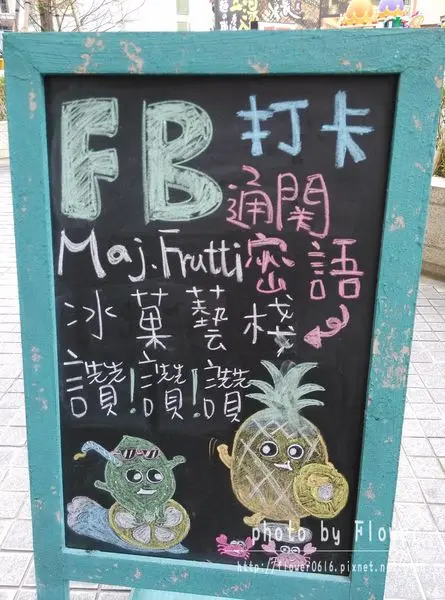 FB 打卡
通關
密語
Maj. Frutti
冰菓藝棧
讚!讚!讚
photo by Flower
http://flower0616.pixnet.net